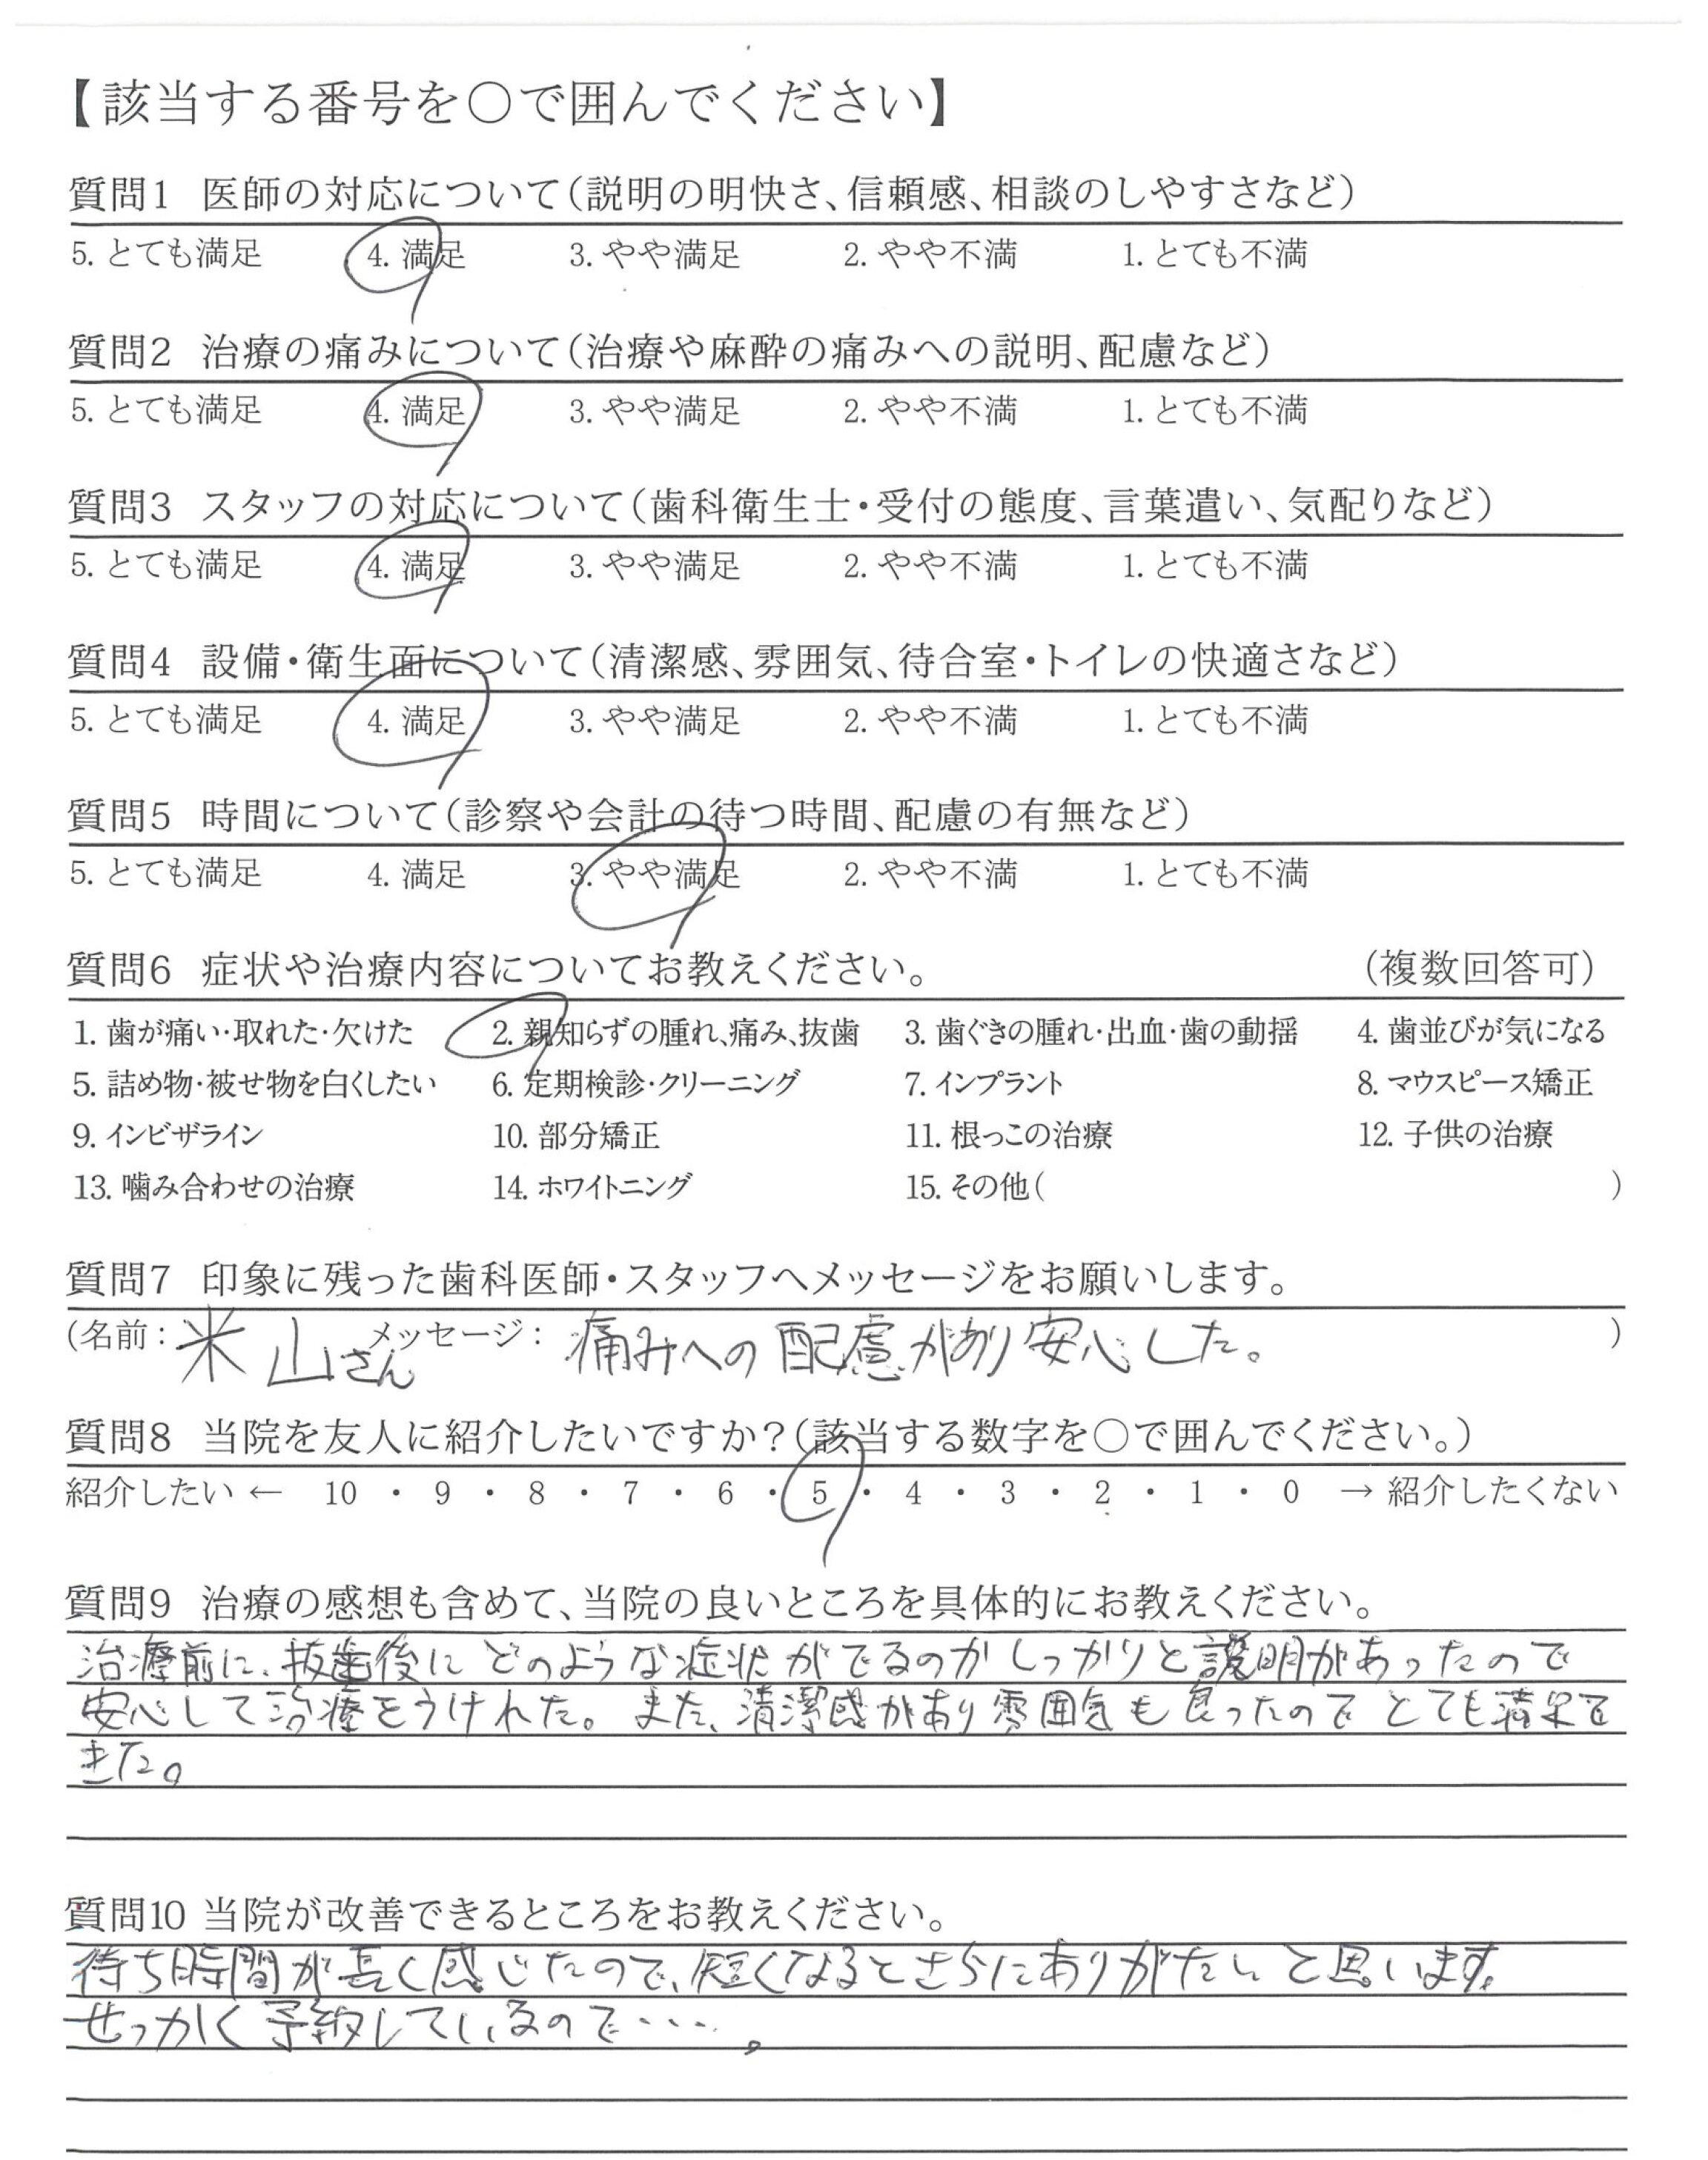 【該当する番号を○で囲んでください】
質問1 医師の対応について(説明の明快さ、信頼感、相談のしやすさなど)
5. とても満足 4. 満足 3. やや満足 2. やや不満 1. とても不満
質問2 治療の痛みについて(治療や麻酔の痛みへの説明、配慮など)
5. とても満足 4. 満足 3. やや満足 2. やや不満 1. とても不満
質問3 スタッフの対応について(歯科衛生士・受付の態度、言葉遣い、気配りなど)
5. とても満足 4. 満足 3. やや満足 2. やや不満 1. とても不満
質問4 設備・衛生面について(清潔感、雰囲気、待合室・トイレの快適さなど)
5. とても満足 4. 満足 3. やや満足 2. やや不満 1. とても不満
質問5 時間について(診察や会計の待つ時間、配慮の有無など)
5. とても満足 4. 満足 3. やや満足 2. やや不満 1. とても不満
質問6 症状や治療内容についてお教えください。 (複数回答可)
1. 歯が痛い・取れた・欠けた 2. 親知らずの腫れ、痛み、抜歯 3. 歯ぐきの腫れ・出血・歯の動揺 4. 歯並びが気になる
5. 詰め物・被せ物を白くしたい 6. 定期検診・クリーニング 7. インプラント 8. マウスピース矯正
9. インビザライン 10. 部分矯正 11. 根っこの治療 12. 子供の治療
13. 噛み合わせの治療 14. ホワイトニング 15. その他( )
質問7 印象に残った歯科医師・スタッフへメッセージをお願いします。
(名前: 米山さん メッセージ: 痛みへの配慮があり安心した。 )
質問8 当院を友人に紹介したいですか?(該当する数字を○で囲んでください。)
紹介したい ← 10 ・ 9 ・ 8 ・ 7 ・ 6 ・ 5 ・ 4 ・ 3 ・ 2 ・ 1 ・ 0 → 紹介したくない
質問9 治療の感想も含めて、当院の良いところを具体的にお教えください。
治療前に、抜歯後にどのような症状がでるのかしっかりと説明があったので
安心して治療をうけれた。また、清潔感があり雰囲気も良ったのでとても満足で
きた。
質問10 当院が改善できるところをお教えください。
待ち時間が長く感じたので、短くなるとさらにありがたいと思います。
せっかく予約しているので・・・。